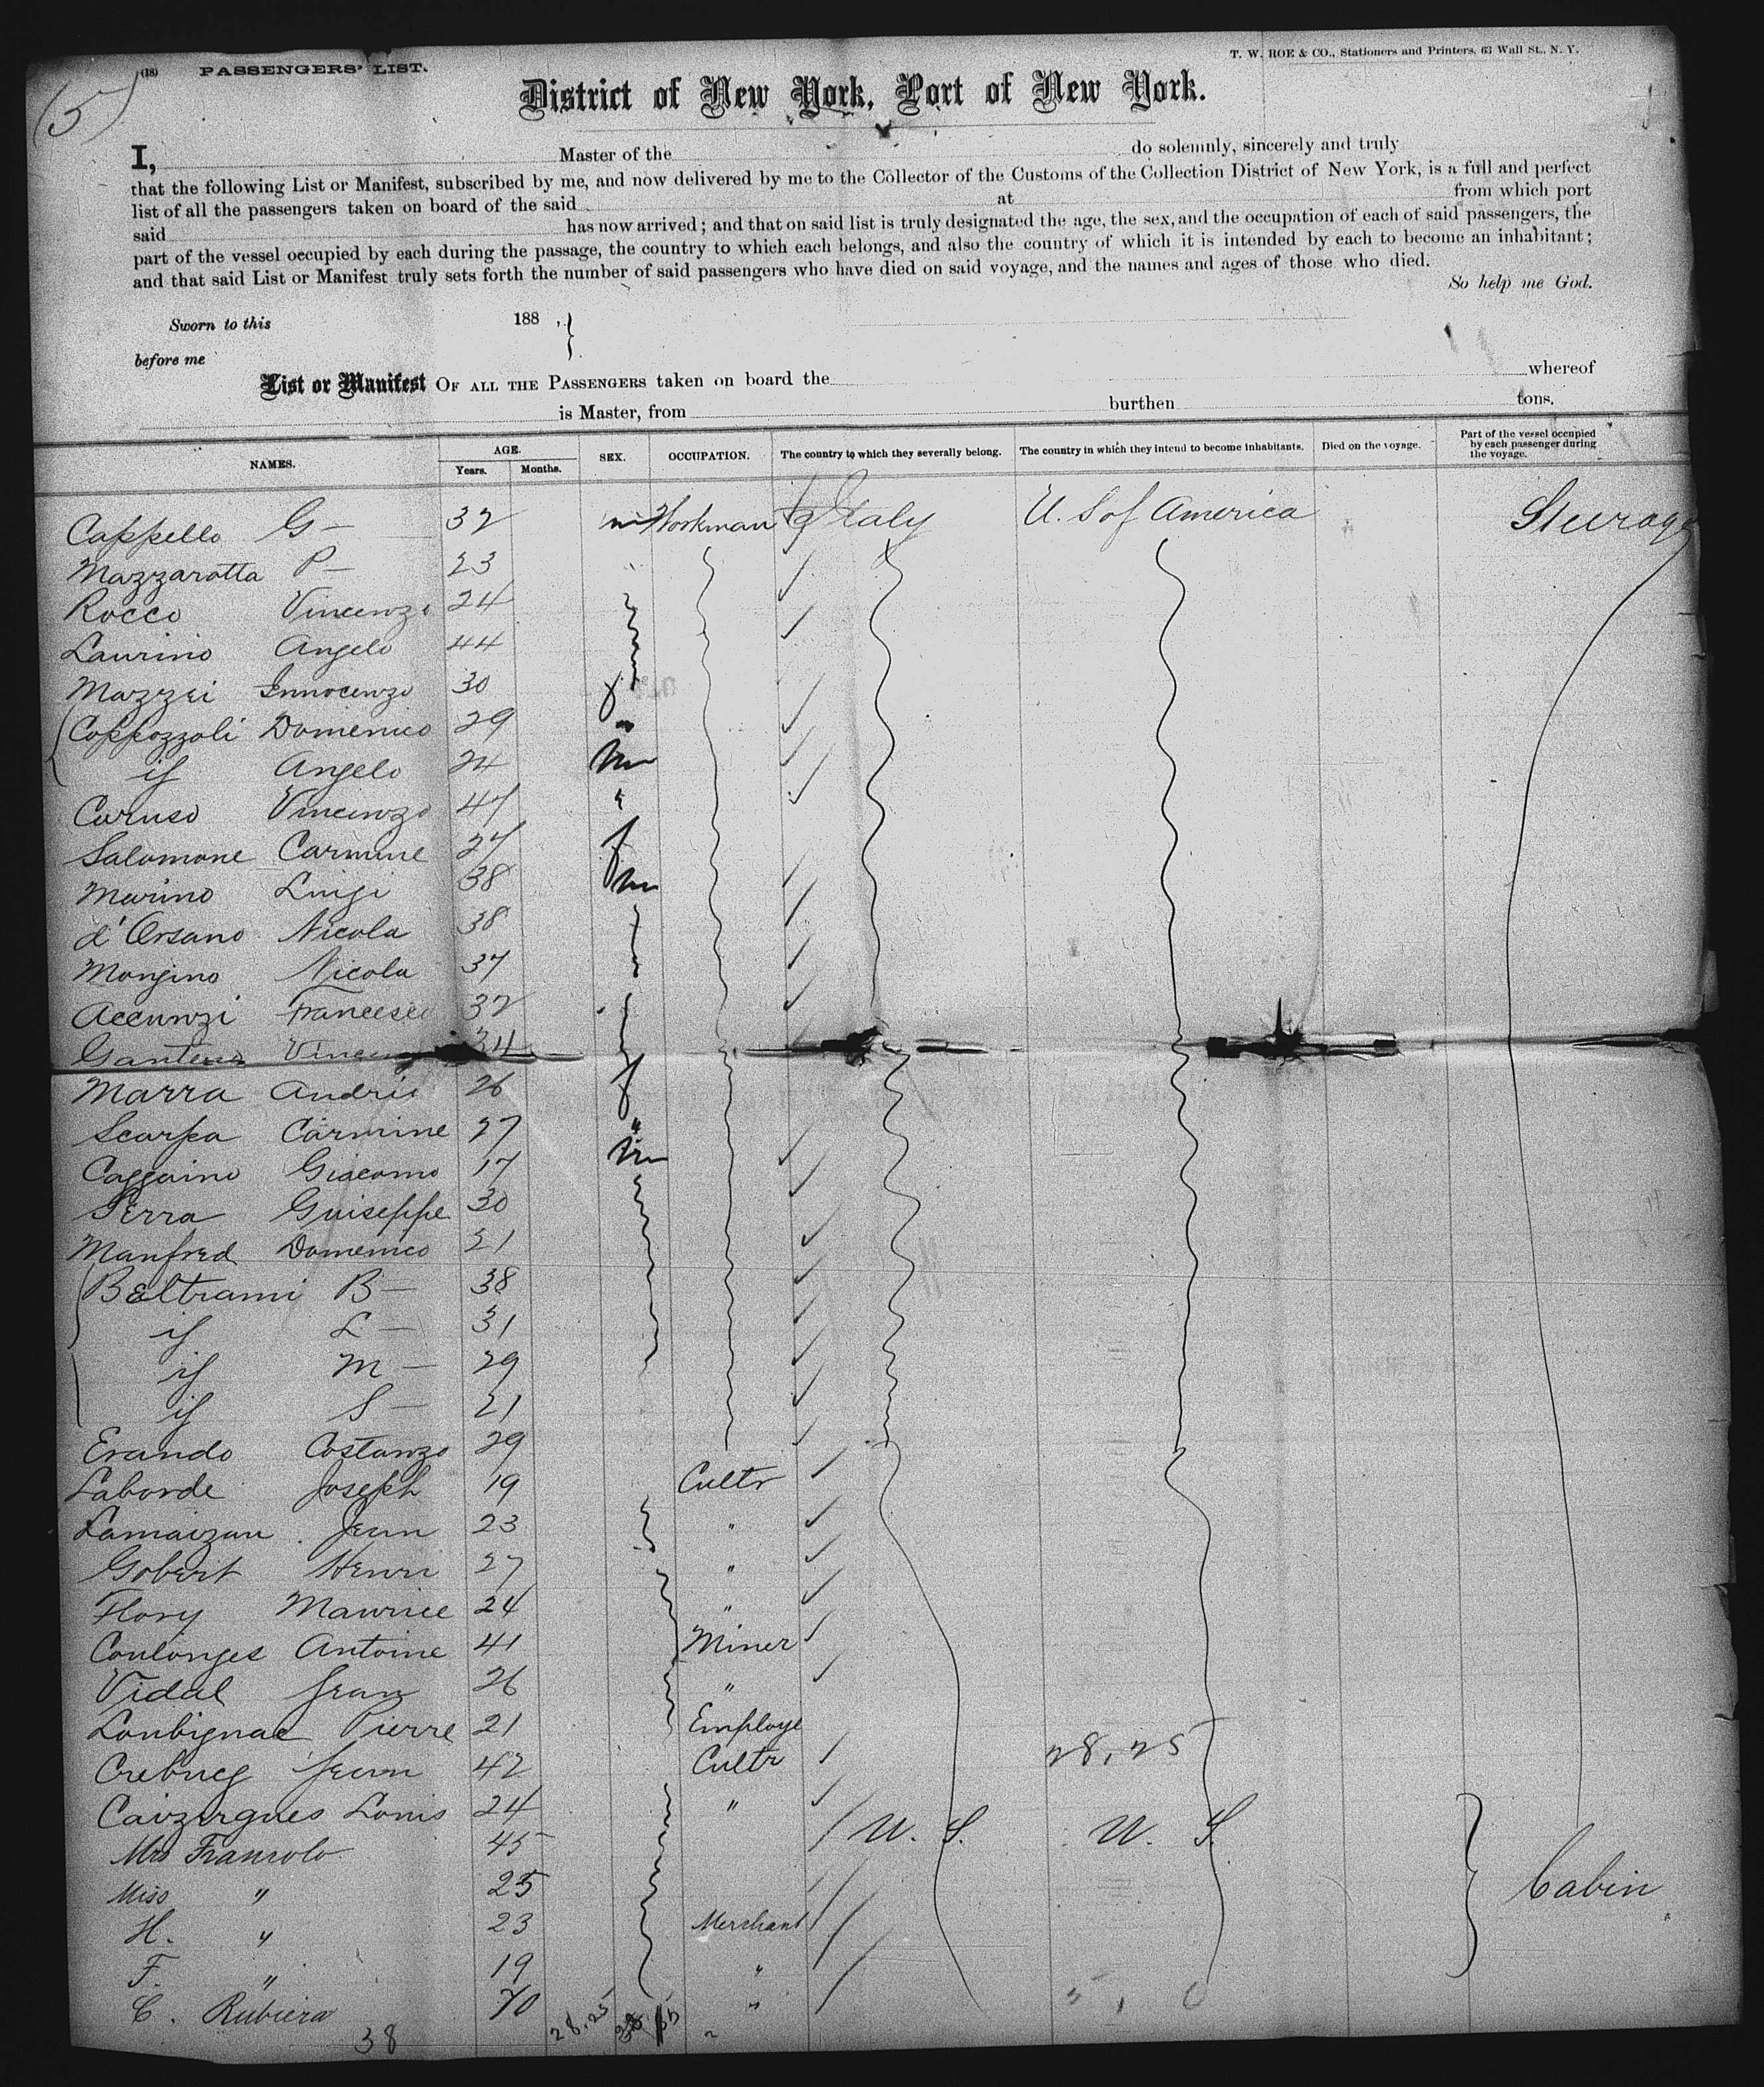 (5)
(18) PASSENGERS' LIST.
T. W. ROE & CO., Stationers and Printers, 63 Wall St., N. Y.
District of New York, Port of New York.
I, Master of the do solemnly, sincerely and truly
that the following List or Manifest, subscribed by me, and now delivered by me to the Collector of the Customs of the Collection District of New York, is a full and perfect
list of all the passengers taken on board of the said at from which port
said has now arrived; and that on said list is truly designated the age, the sex, and the occupation of each of said passengers, the
part of the vessel occupied by each during the passage, the country to which each belongs, and also the country of which it is intended by each to become an inhabitant;
and that said List or Manifest truly sets forth the number of said passengers who have died on said voyage, and the names and ages of those who died.
So help me God.
Sworn to this 188 ,
before me
List or Manifest OF ALL THE PASSENGERS taken on board the whereof
is Master, from burthen tons.
NAMES. AGE. Years. Months. SEX. OCCUPATION. The country to which they severally belong. The country in which they intend to become inhabitants. Died on the voyage. Part of the vessel occupied by each passenger during the voyage.
Cappello G— 32 m Workman Italy U. S of America Steerage
Mazzarotta P— 23
Rocco Vincenzo 24
Laurino Angelo 44
Mazzei Innocenzo 30 f
Coppozzoli Domenico 29 "
if Angelo 24 m
Caruso Vincenzo 47 "
Salomone Carmine 27 f
Marino Luigi 38 m
d'Orsano Nicola 38
Mongino Nicola 37
Accunzi Francesco 32
34
Marra Andrii 26 f
Scarpa Carmine 27 "
Caggaino Giacomo 17 m
Serra Guiseppe 30
Manfred Domenico 21
Beltrami B— 38
if L— 31
if M— 29
if S— 21
Erando Costanzo 29
Laborde Joseph 19 Cultr
Lamaizau Jean 23 "
Gobert Henri 27 "
Flory Maurice 24 "
Coulonges Antoine 41 Miner
Vidal Jean 26 "
Loubignac Pierre 21 Employe
Jean 42 Cultr 28,25
Caizergues Louis 24 "
Mrs Fransolo 45 U. S. U. S.
Miss " 25 Cabin
H. " 23 Merchant
F. " 19 "
C. Rubiera 70 "
38 28.25